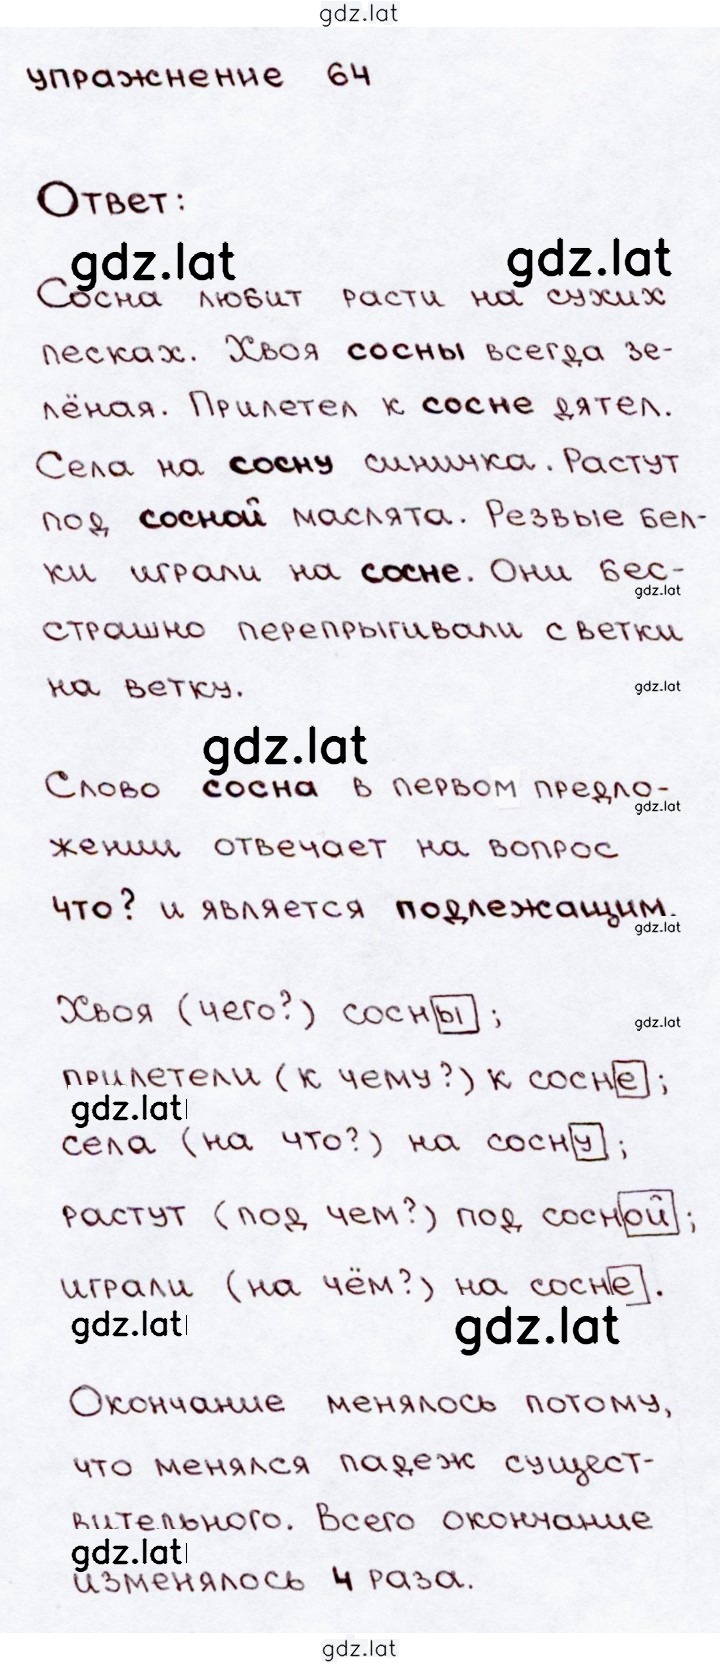 gdz.lat
упражнение 64
Ответ:
gdz.lat gdz.lat
Сосна любит расти на сухих
песках. Хвоя сосны всегда зе-
лёная. Прилетел к сосне дятел.
Села на сосну синичка. Растут
под сосной маслята. Резвые бел-
ки играли на сосне. Они бес-
gdz.lat
страшно перепрыгивали с ветки
на ветку.
gdz.lat
gdz.lat
Слово сосна в первом предло-
gdz.lat
жении отвечает на вопрос
что? и является подлежащим.
gdz.lat
Хвоя (чего?) сосны;
gdz.lat
прилетели (к чему?) к сосне;
gdz.lat
села (на что?) на сосну;
растут (под чем?) под сосной;
играли (на чём?) на сосне.
gdz.lat gdz.lat
Окончание менялось потому,
что менялся падеж сущест-
вительного. Всего окончание
gdz.lat
изменялось 4 раза.
gdz.lat